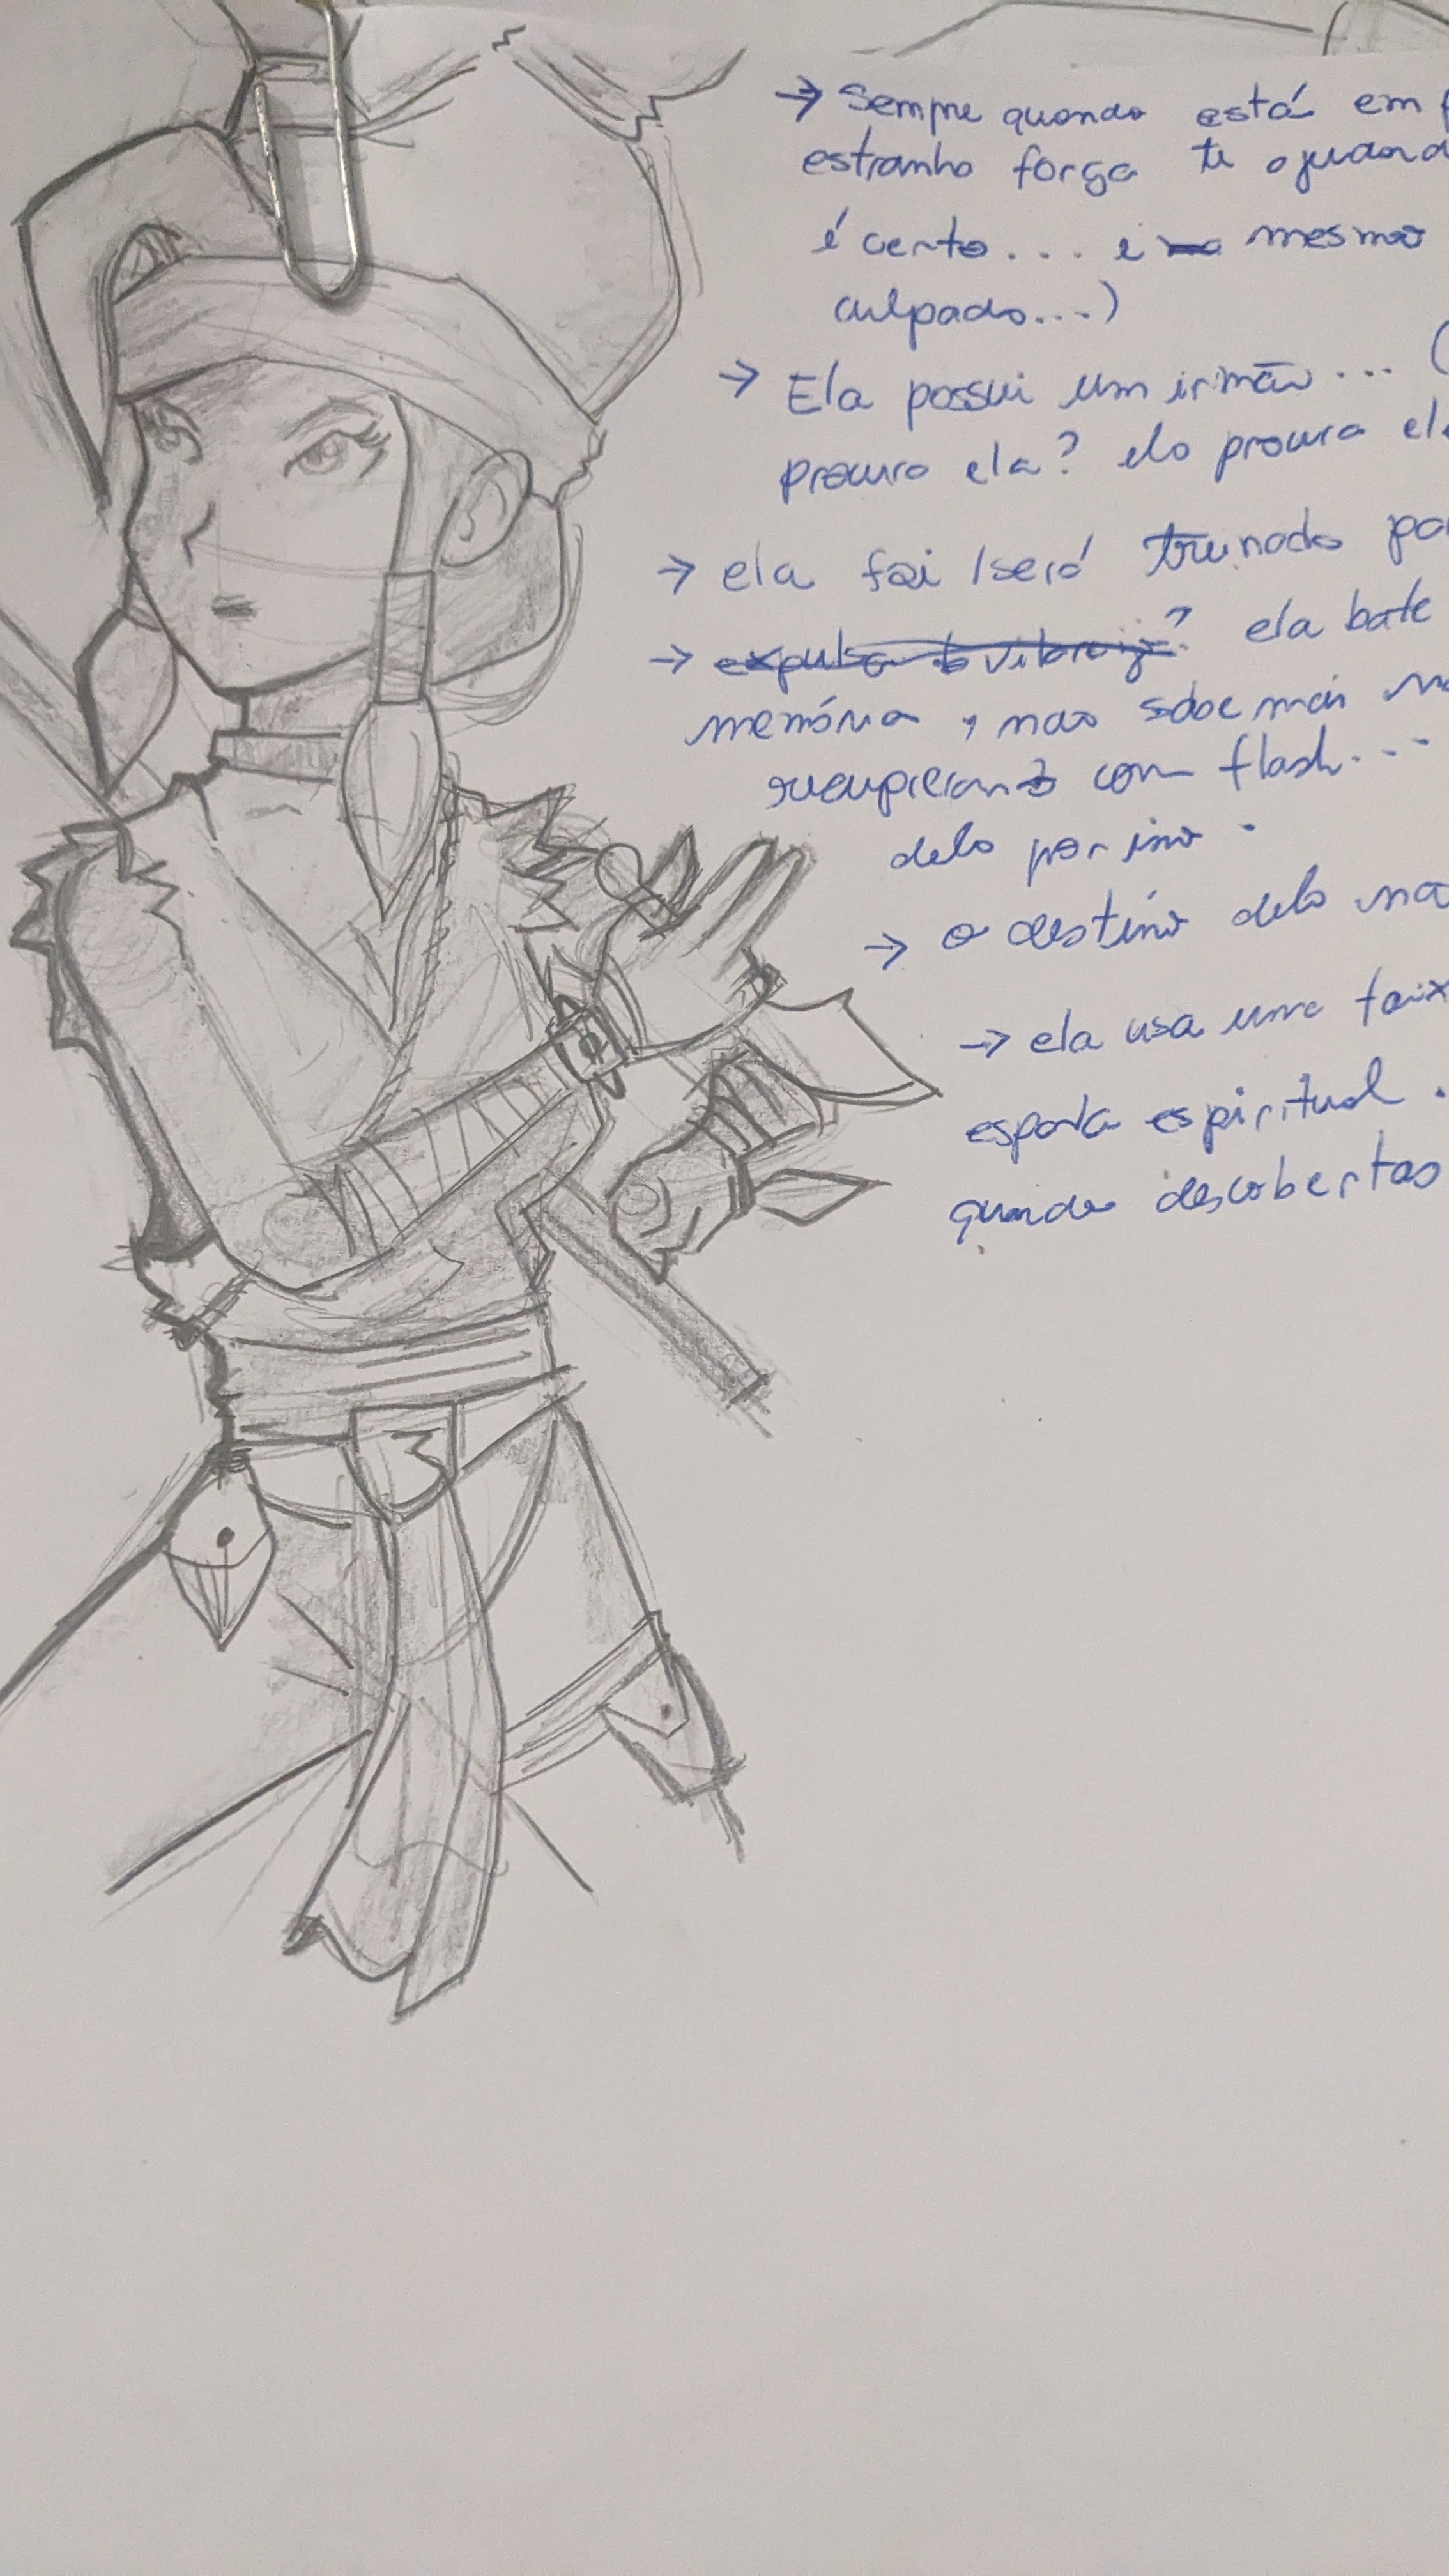 → Sempre quando está em
estranho força te ajuand
é certo... e mesmo
culpado...)
→ Ela possui um irmão... (
procura ela? ela procura el
→ ela foi / será treinada po
→ ? ela bate
memória, não sabe mais
com flash...
dela por isso.
→ o destino dela nã
→ ela usa uma faix
espada espiritual.
quando descobertas